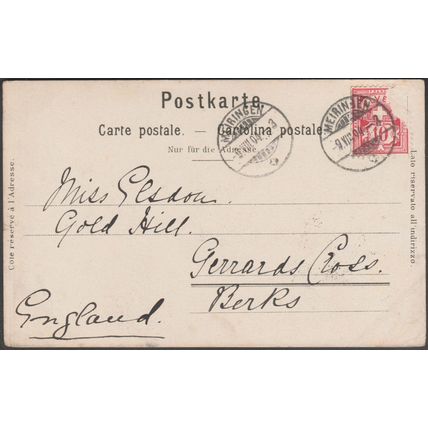 Postkarte.
Carte postale. — Cartolina postale.
Nur für die Adresse
MEIRINGEN
MEIRINGEN
10
Côté réservé à l'Adresse.
Lato riservato all'indirizzo.
Miss Elsdon
Gold Hill.
Gerrards Cross.
Berks
England.